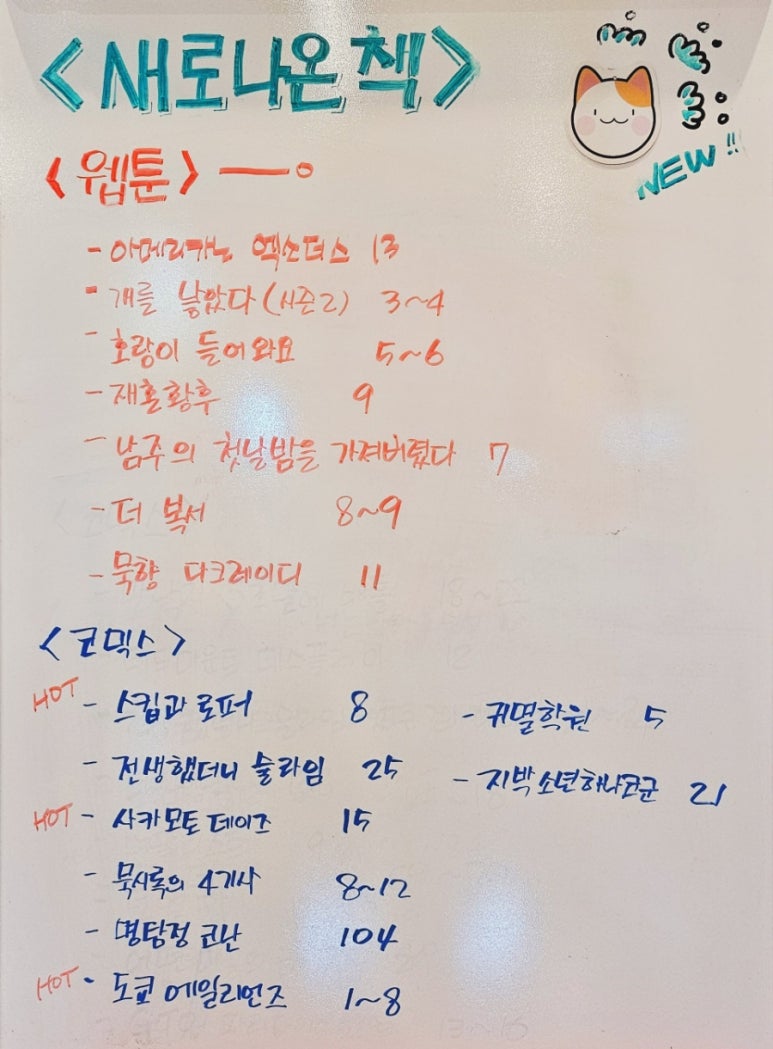 <새로나온 책>
NEW!!
<웹툰>
- 아메리카노 엑소더스 13
- 개를 낳았다(시즌2) 3~4
- 호랑이 들어와요 5~6
- 재혼황후 9
- 남주의 첫날밤을 가져버렸다 7
- 더 복서 8~9
- 묵향 다크레이디 11
<코믹스>
HOT - 스킵과 로퍼 8
- 전생했더니 슬라임 25
HOT - 사카모토 데이즈 15
- 묵시록의 4기사 8~12
- 명탐정 코난 104
HOT - 도쿄 에일리언즈 1~8
- 귀멸학원 5
- 지박소년하나코군 21